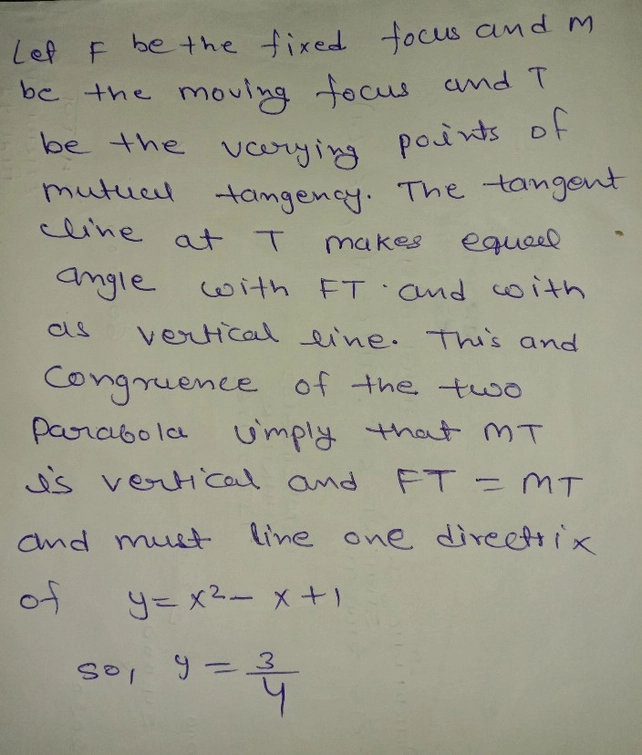 Let F be the fixed focus and M
be the moving focus and T
be the varying points of
mutual tangency. The tangent
line at T makes equal
angle with FT and with
as vertical line. This and
Congruence of the two
Parabola imply that MT
is vertical and FT = MT
and must line one directrix
of y = x² - x + 1
so, y = 3/4